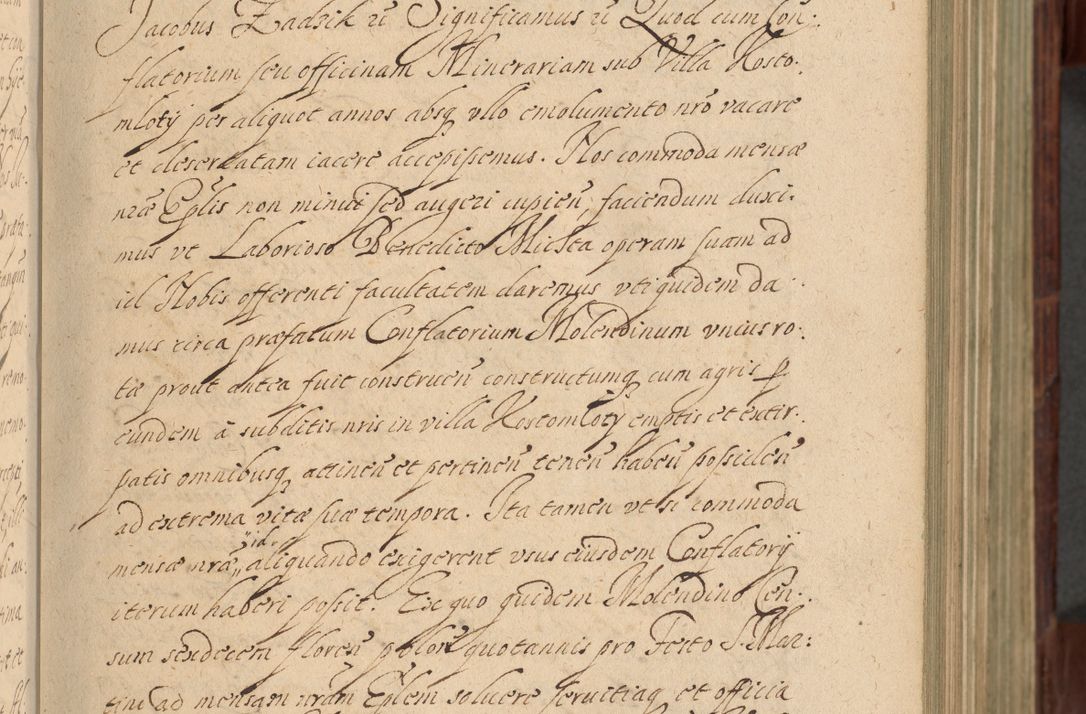 Jacobus Zadzik etc Significamus etc Quod cum Con:
flatorium seu officinam Minerariam sub Villa Kosto:
młoty per aliquot annos absq ullo emolumento nro vacare
et desertatam iacere accepissemus. Nos commoda mensæ
nræ Eplis non minui sed augeri cupien, faciendum duxi:
mus vt Laborioso Benedicto Miesta operam suam ad
id Nobis offerenti facultatem daremus vti quidem da
mus circa præfatum Conflatorium Molendinum vnius ro:
tæ prout antea fuit construen constructumq cum agris p
eundem à subditis nris in villa Kostomłoty emptis et extir:
patis omnibusq attinen et pertinen tenen haben possiden
ad extrema vitæ suæ tempora. Ita tamen vt si commoda
mensæ nræ id aliquando exigerent vsus eiusdem Conflatorij
iterum haberi possit. Ex quo quidem Molendino Cen:
sum sexdecem floren polon quotannis pro Festo S. Mar:
tini ad mensam nram Eplem soluere seruitiaq et officia